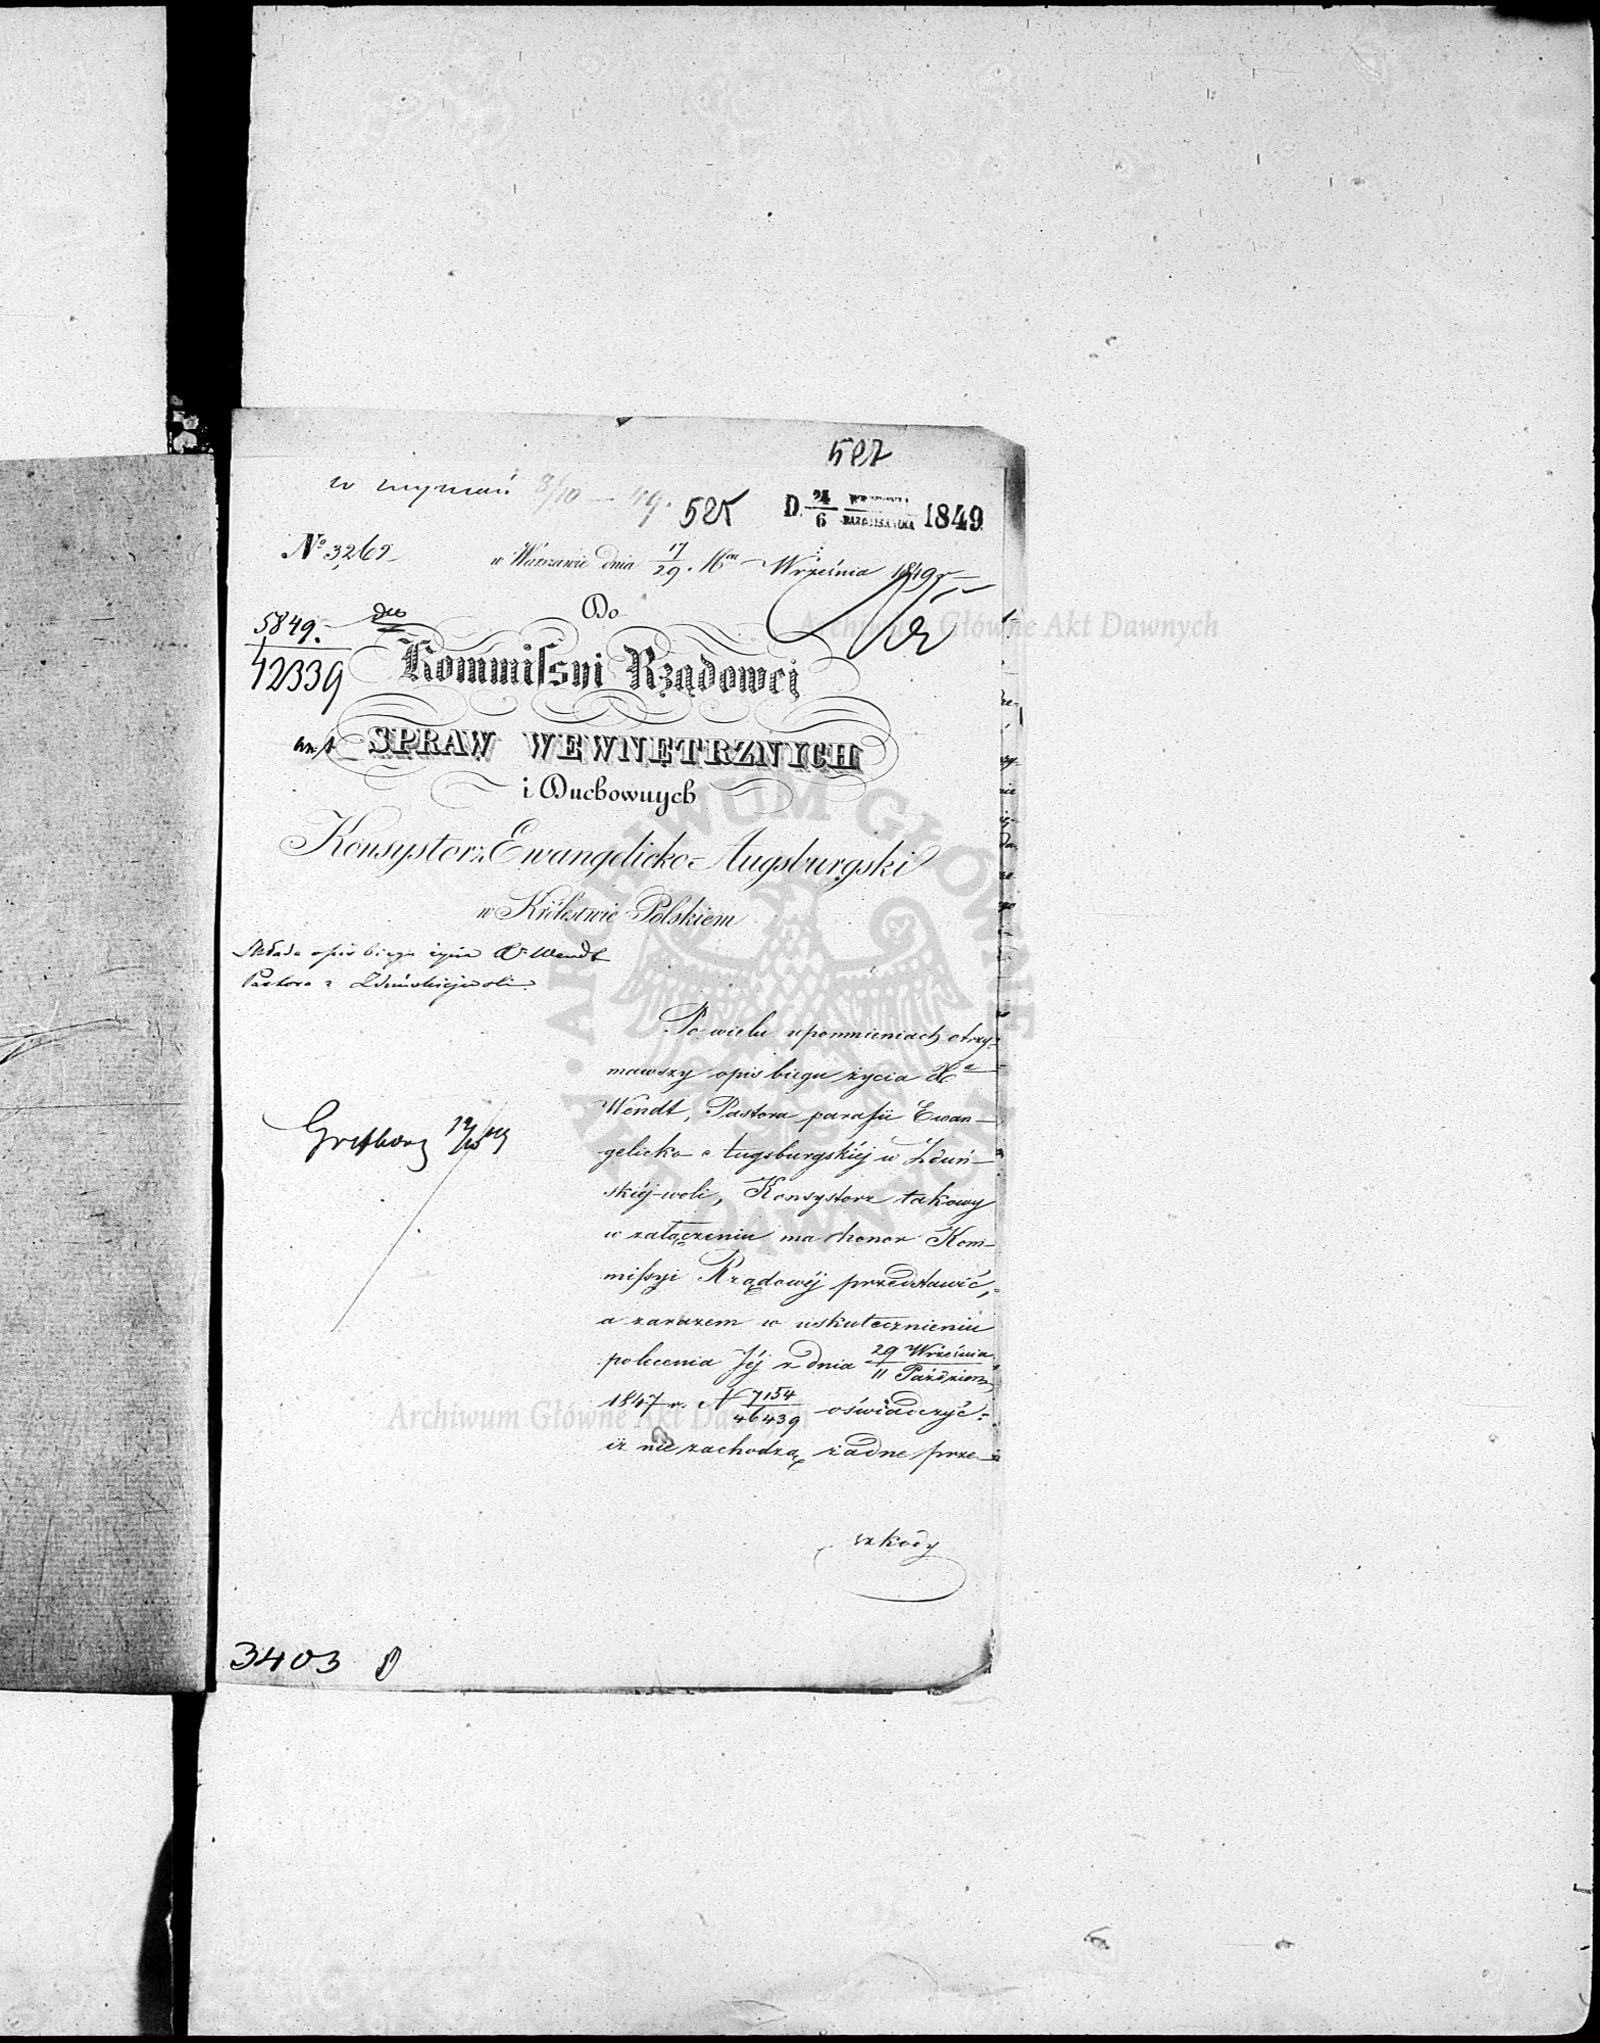 587
525
D. 24/6 1849
№ 3269
w Warszawie dnia 17/29 Września 1849 r
Do
5849
12339
Kommissyi Rządowej
SPRAW WEWNĘTRZNYCH
i Duchownych
Konsystorz Ewangelicko-Augsburgski
w Królestwie Polskiem
Składa opis biegu życia X Wendt
Pastora z Zduńskiejwoli.
Po wielu upomnieniach otrzy-
mawszy opis biegu życia Xa
Wendt, Pastora parafii Ewan-
gelicko Augsburgskiéj w Zduń-
skiéj-woli, Konsystorz takowy
w załączeniu ma honor Kom-
missyi Rządowéj przedstawić,
a zarazem w uskutecznieniu
polecenia Jéj z dnia 29 Września / 11 Paździer.
1847 r. N 7154/46439 oświadczyć
iż nie zachodzą żadne prze-
szkody
3403
Archiwum Główne Akt Dawnych
Archiwum Główne Akt Dawnych
ARCHIWUM GŁÓWNE AKT DAWNYCH